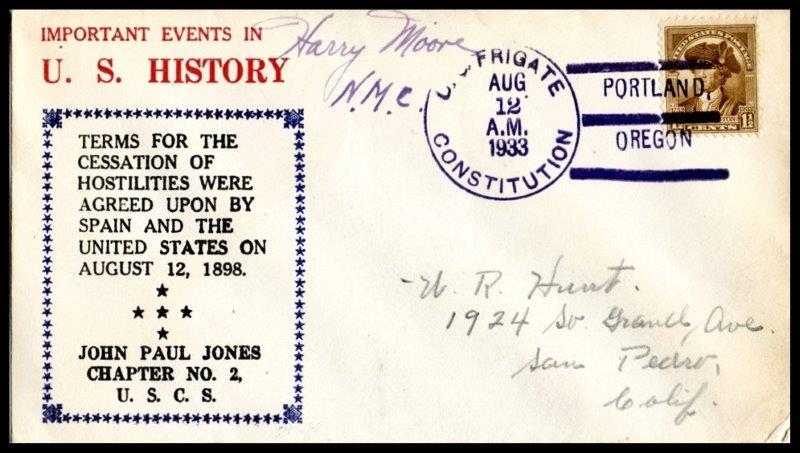 IMPORTANT EVENTS IN
U. S. HISTORY
TERMS FOR THE
CESSATION OF
HOSTILITIES WERE
AGREED UPON BY
SPAIN AND THE
UNITED STATES ON
AUGUST 12, 1898.
JOHN PAUL JONES
CHAPTER NO. 2,
U. S. C. S.
Harry Moore
N.M.C.
U.S. FRIGATE
AUG
12
A.M.
1933
CONSTITUTION
PORTLAND,
OREGON
UNITED STATES POSTAGE
1½
CENTS
W. R. Hunt.
1924 So. Grand Ave.
San Pedro,
Calif.